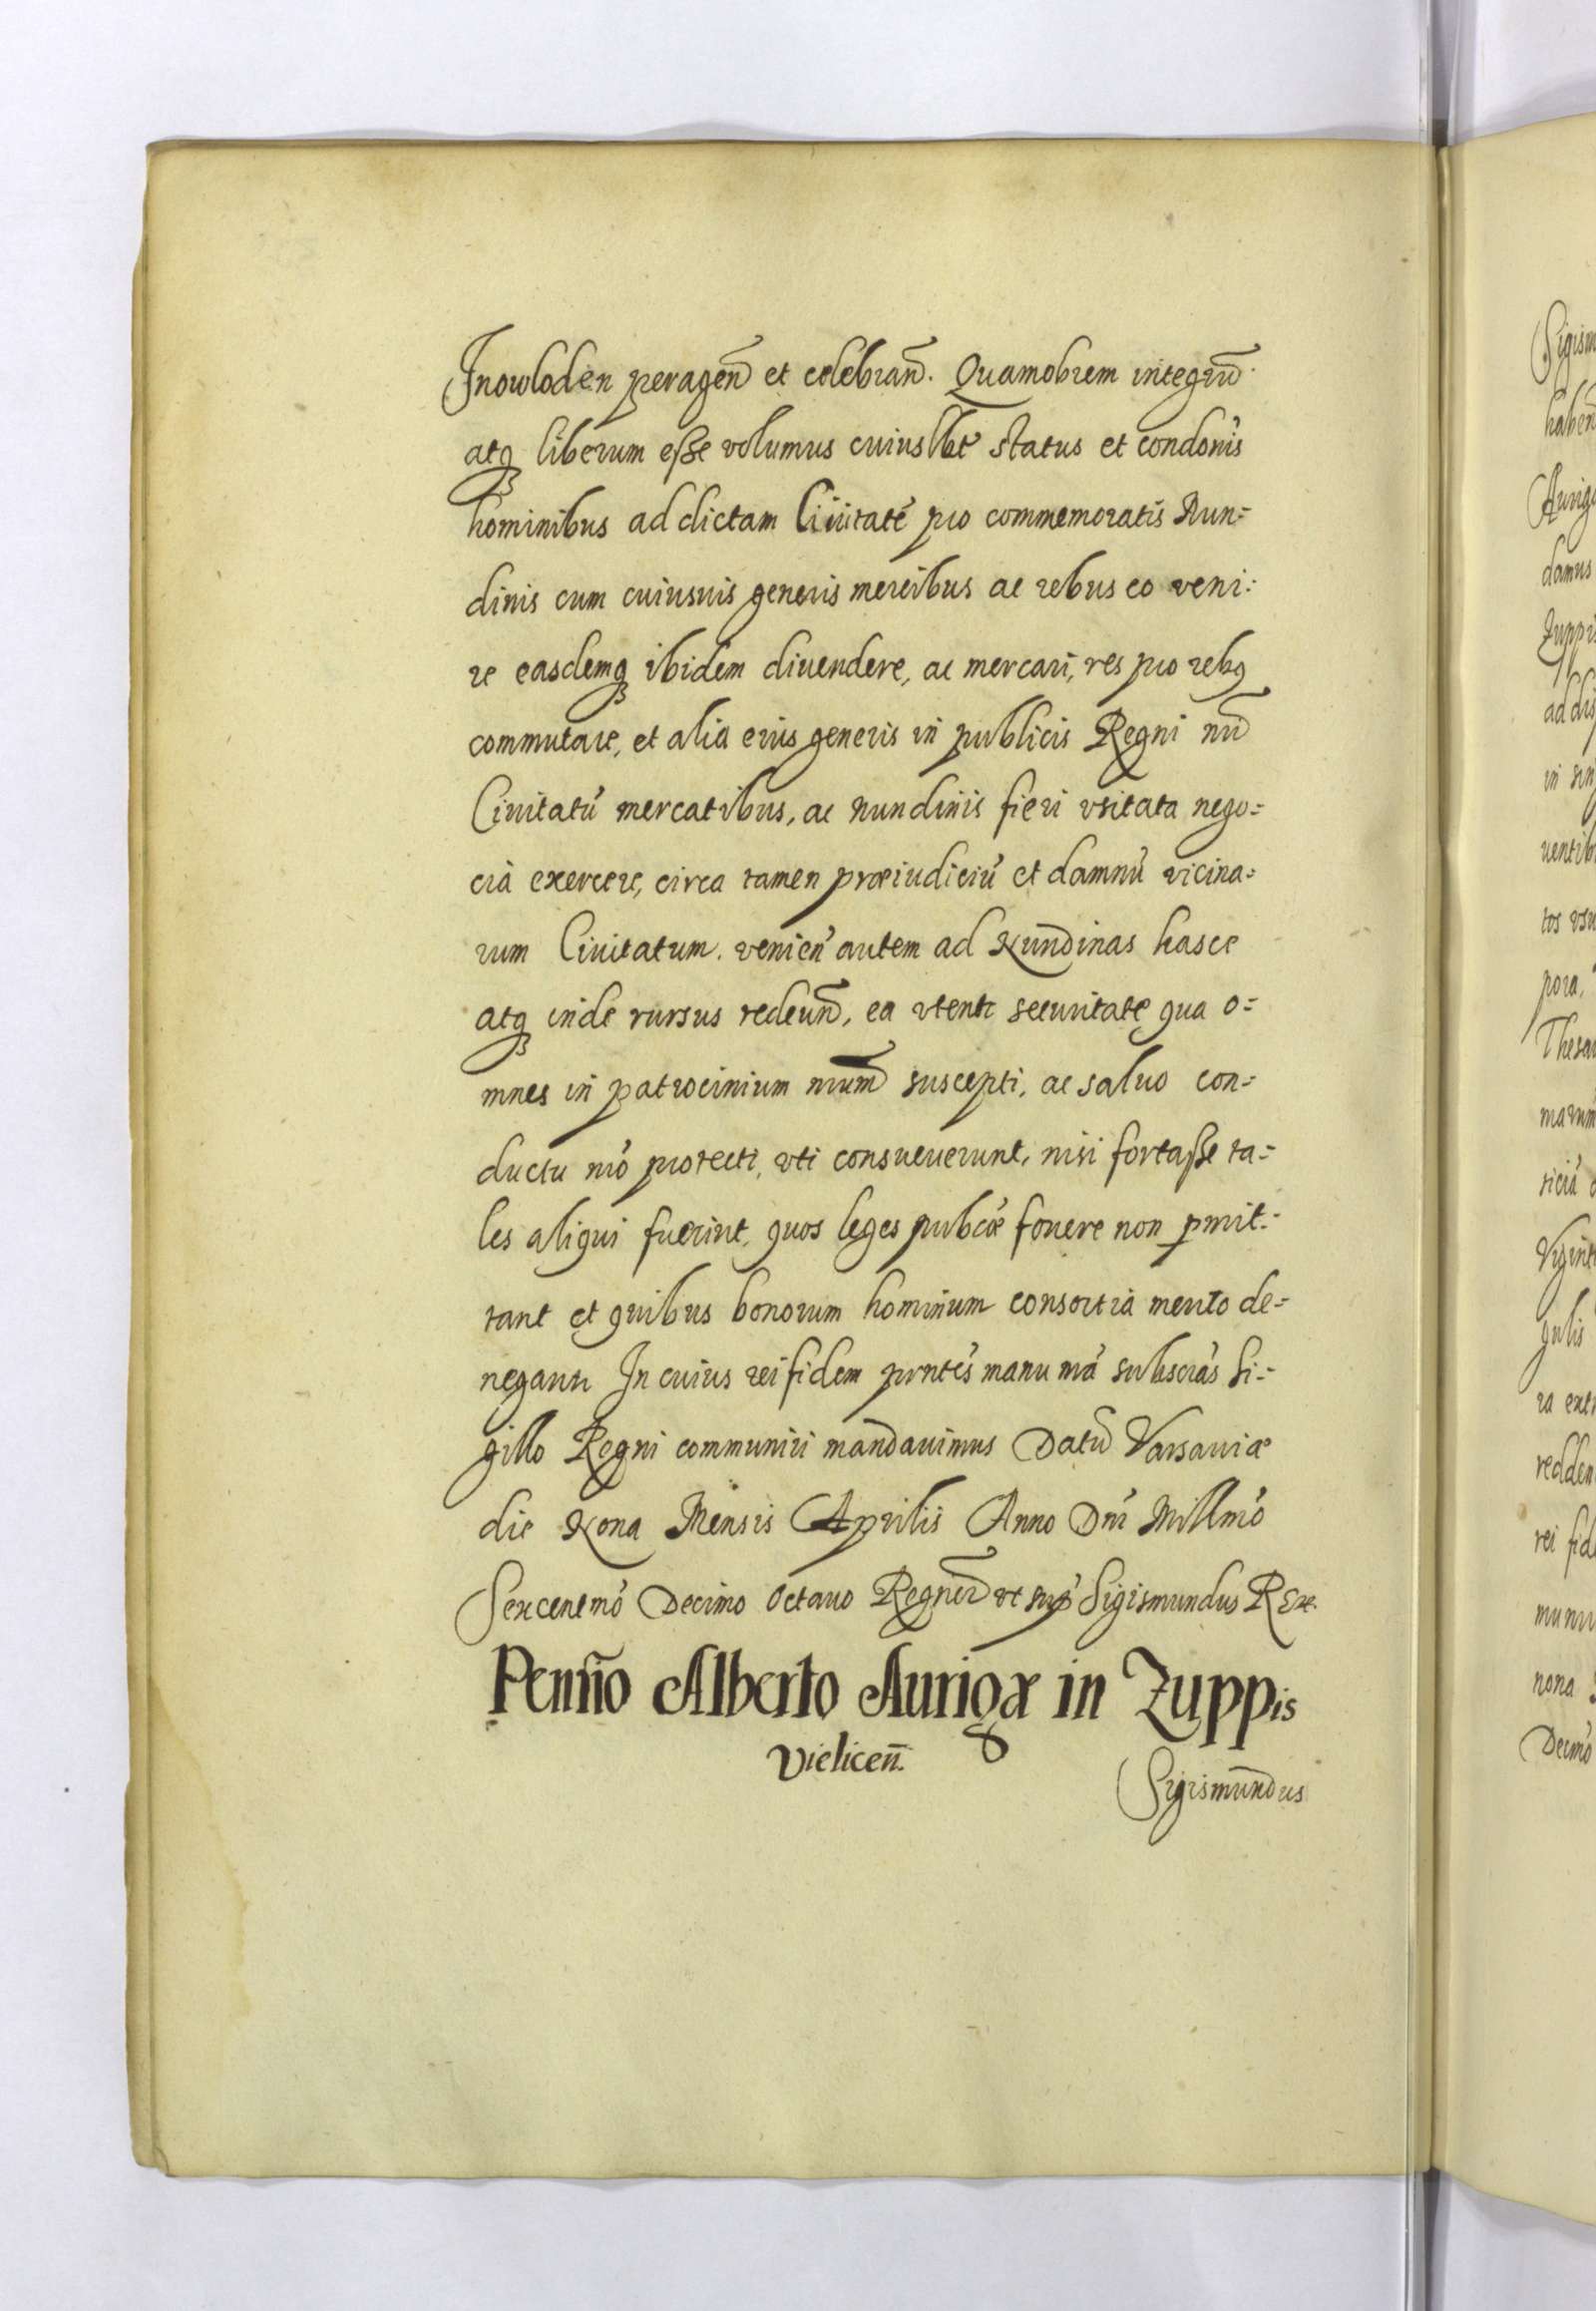 Inowloden peragen̄ et celebran̄. Quamobrem integrū
atqꝫ liberum eſse volumus cuiuslbt status et condonis
hominibus ad dictam Ciuitatē pro commemoratis Nun=
dinis cum cuiusuis generis mercibus ac rebus eo veni=
re easdemqꝫ ibidem diuendere, ac mercari, res pro rebꝰ
commutare, et alia eius generis in publicis Regni nrī
Ciuitatū mercatibus, ac nundinis fieri vsitata nego=
cia exercere, circa tamen præiudiciū et damnū vicina=
rum Ciuitatum. venien̄ autem ad Nundinas hasce
atqꝫ inde rursus redeun̄, ea vtentr securitate qua o=
mnes in patrocinium nrum̄ suscepti, ac saluo con=
ductu nrō protecti, vti consueuerunt, nisi fortaſse ta=
les aliqui fuerint, quos leges pubcæ fouere non pmit=
tant et quibus bonorum hominum consortia merito de=
negantr In cuius rei fidem pn̄tes manu nrā subscrās Si=
gillo Regni communiri mandauimus Datū Varsauiæ
die Nona Mensis Aprilis Anno Dn̄i Millmō
Sexcentmō Decimo Octauo Regnorū vt supͣ Sigismundus REx.
Penn̄o Alberto Aurigæ in Zuppis
Vielicen̄.
Sigismundus